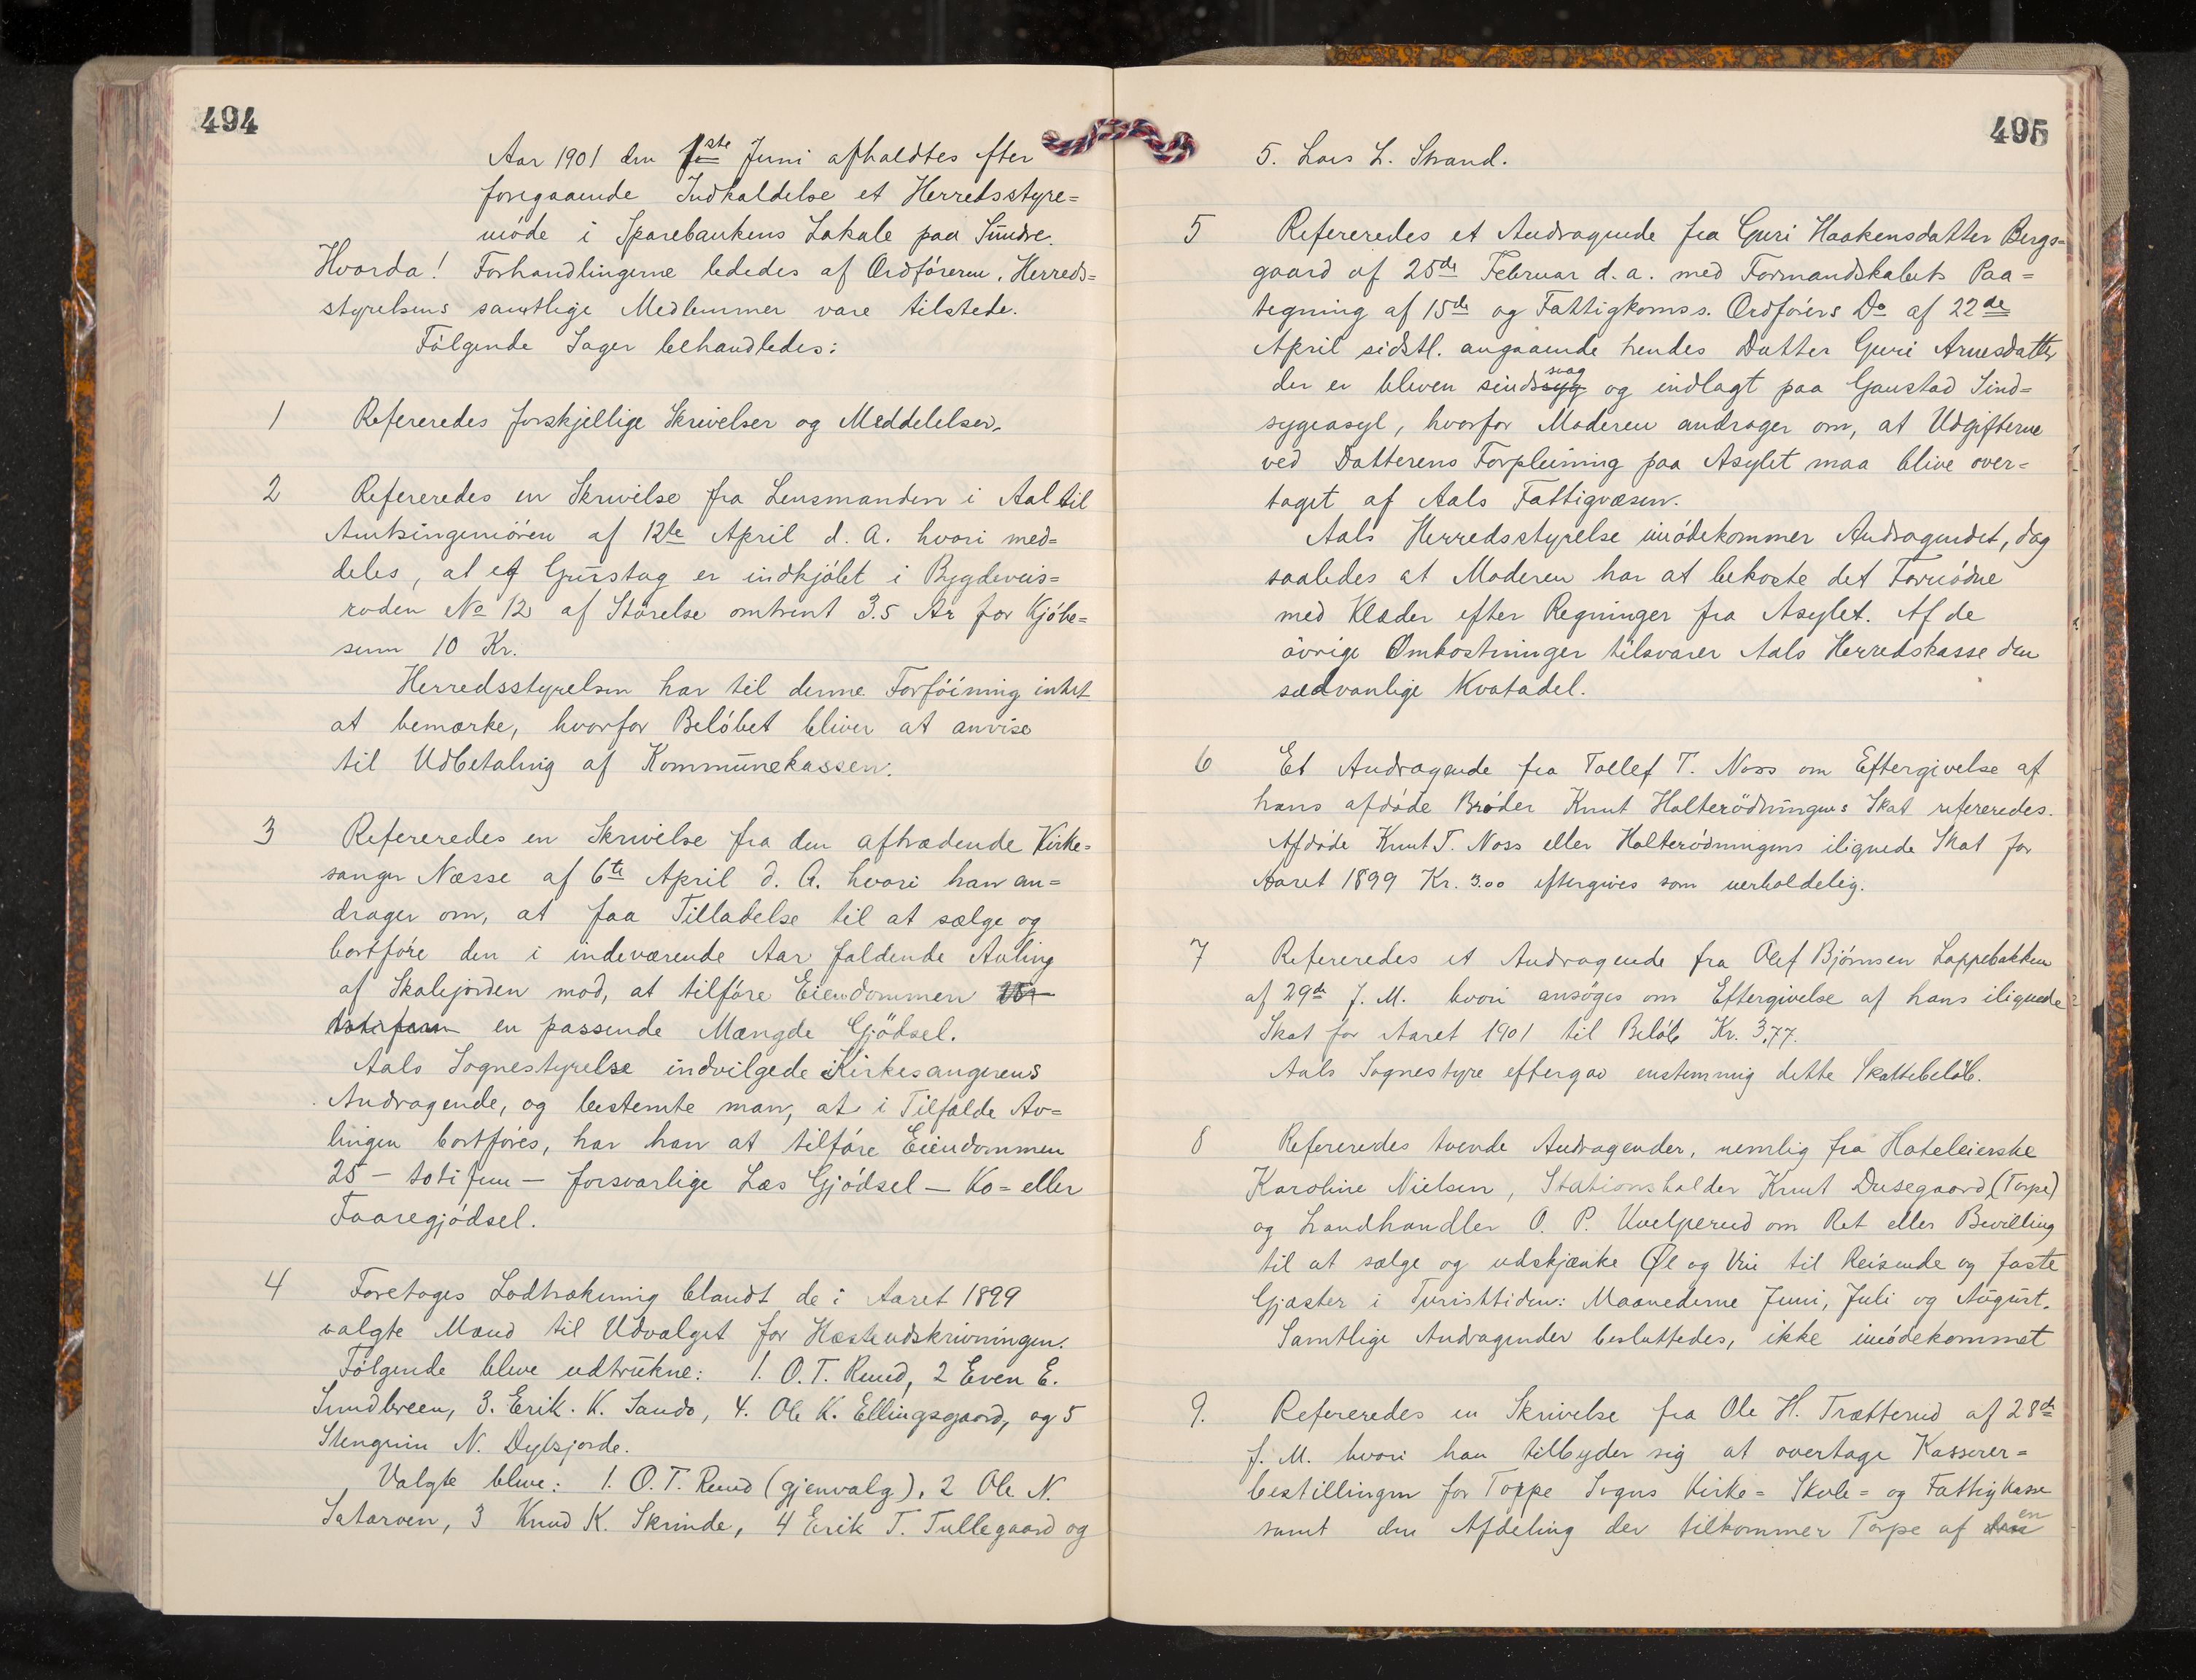 494
Aar 1901 den 1ste Juni afholdtes efter
foregaaende Indkaldelse et Herredsstyre=
möde i Sparebankens Lokale paa Sundre.
Hvorda! Forhandlingerne lededes af Ordföreren. Herreds=
styrelsens samtlige Medlemmer vare tilstede.
Fölgende Sager behandledes:
1 Refereredes forskjellige Skrivelser og Meddelelser.
2 Refereredes en Skrivelse fra Lensmanden i Aal til
Amtsingeniören af 12te April d. A. hvori med=
deles, at et Grustag er indkjöbt i Bygdeveis=
roden No 12 af Störelse omtrent 3.5 Ar for Kjöbe=
sum 10 Kr.
Herredsstyrelsen har til denne Forföining intet
at bemærke, hvorfor Belöbet bliver at anvise
til Udbetaling af Kommunekassen.
3 Refereredes en Skrivelse fra den aftrædende Kirke=
sanger Næsse af 6te April d. A. hvori han an=
drager om, at faa Tilladelse til at sælge og
bortföre den i indeværende Aar faldende Avling
af Skolejorden mod, at tilföre Eiendommen 25 -
toti fem en passende Mængde Gjödsel.
Aals Sognestyrelse indvilgede i Kirkesangerens
Andragende, og bestemte man, at i Tilfælde Av=
lingen bortföres, har han at tilföre Eiendommen
25 - toti fem - forsvarlige Læs Gjödsel - Ko= eller
Faaregjödsel.
4 Foretoges Lodtrækning blandt de i Aaret 1899
valgte Mænd til Udvalget for Hesteudskrivningen.
Fölgende bleve udtrukne: 1. O. T. Ruud, 2 Even E.
Sundbreen, 3. Erik. K. Sando, 4. Ole K. Ellingsgaard, og 5
Stengrim N. Dybsjorde.
Valgte bleve: 1. O. T. Ruud (gjenvalg), 2 Ole N.
Sataröen, 3 Knud K. Skrinde, 4 Erik T. Tullegaard og
495
5. Lars L. Strand.
5 Refereredes et Andragende fra Guri Haakensdatter Bergs=
gaard af 25de Februar d. a. med Formandskabets Paa=
tegning af 15de og Fattigkomss. Ordförers Do af 22de
April sidstl. angaaende hendes Datter Guri Arnesdatter
der er bleven sindssyg svag og indlagt paa Gaustad Sind=
sygeasyl, hvorfor Moderen andrager om, at Udgifterne
ved Datterens Forpleining paa Asylet maa blive over=
taget af Aals Fattigvæsen.
Aals Herredsstyrelse imödekommer Andragendet, dog
saaledes at Moderen har at bekoste det Fornödne
med Klæder efter Regninger fra Asylet. Af de
övrige Omkostninger tilsvarer Aals Herredskasse den
sædvanlige Kvotadel.
6 Et Andragende fra Tollef T. Noss om Eftergivelse af
hans afdöde Broder Knut Halterödningens Skat refereredes.
Afdöde Knut T. Noss eller Halterödningens ilignede Skat for
Aaret 1899 Kr. 3.00 eftergives som uerholdelig.
7 Refereredes et Andragende fra Olef Björnsen Loppebakken
af 29de f. M. hvori ansöges om Eftergivelse af hans ilignede
Skat for Aaret 1901 til Belöb Kr. 3,77.
Aals Sognestyre eftergav enstemmig dette Skattebelöb.
8 Refereredes tvende Andragender, nemlig fra Hoteleierske
Karoline Nielsen, Stationsholder Knut Dusegaard (Torpe)
og Landhandler O. P. Kvelprud om Ret eller Bevilling
til at sælge og udskjænke Øl og Vin til Reisende og faste
Gjæster i Turisttiden: Maanederne Juni, Juli og August.
Samtlige Andragender besluttedes, ikke imödekommet
9. Refereredes en Skrivelse fra Ole H. Trætterud af 28de
f. M. hvori han tilbyder sig at overtage Kasserer=
bestillingen for Torpe Sogns Kirke= Skole= og Fattigkasse
samt den Afdeling der tilkommer Torpe af en